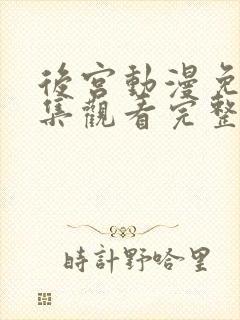 後宮動漫免
集觀看完整
時計野哈里